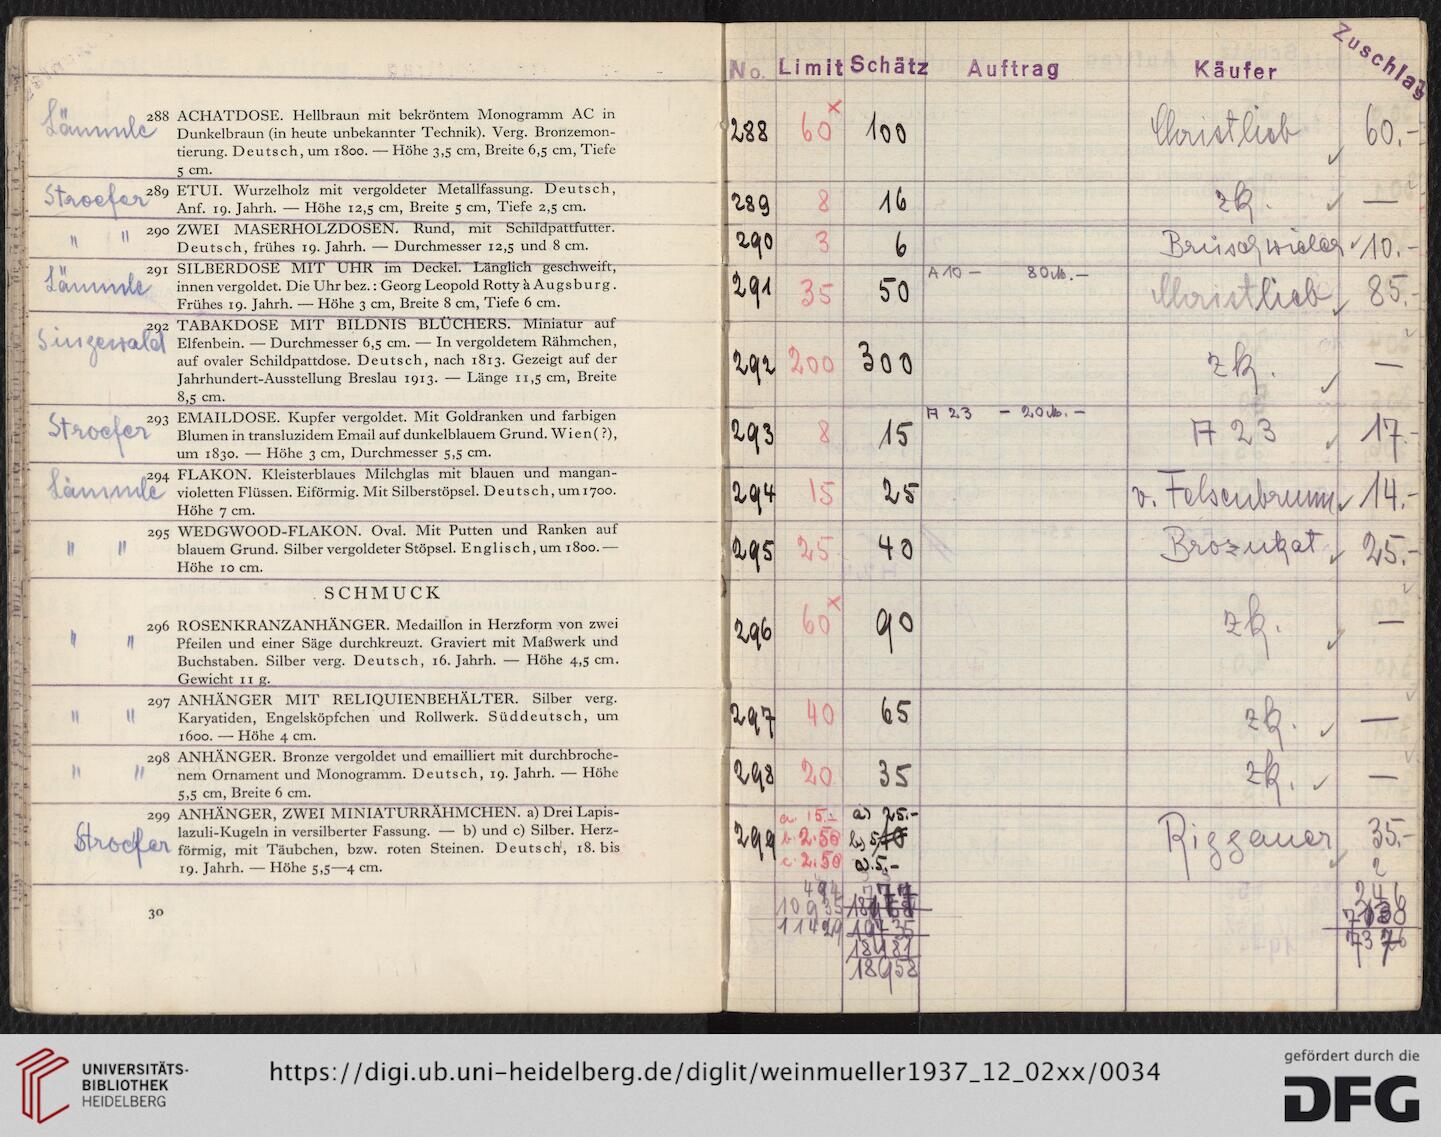 Lämmle
288 ACHATDOSE. Hellbraun mit bekröntem Monogramm AC in
Dunkelbraun (in heute unbekannter Technik). Verg. Bronzemon-
tierung. Deutsch, um 1800. — Höhe 3,5 cm, Breite 6,5 cm, Tiefe
5 cm.
Stroefer
289 ETUI. Wurzelholz mit vergoldeter Metallfassung. Deutsch,
Anf. 19. Jahrh. — Höhe 12,5 cm, Breite 5 cm, Tiefe 2,5 cm.
" "
290 ZWEI MASERHOLZDOSEN. Rund, mit Schildpattfutter.
Deutsch, frühes 19. Jahrh. — Durchmesser 12,5 und 8 cm.
Lämmle
291 SILBERDOSE MIT UHR im Deckel. Länglich geschweift,
innen vergoldet. Die Uhr bez.: Georg Leopold Rotty à Augsburg.
Frühes 19. Jahrh. — Höhe 3 cm, Breite 8 cm, Tiefe 6 cm.
Singewald
292 TABAKDOSE MIT BILDNIS BLÜCHERS. Miniatur auf
Elfenbein. — Durchmesser 6,5 cm. — In vergoldetem Rähmchen,
auf ovaler Schildpattdose. Deutsch, nach 1813. Gezeigt auf der
Jahrhundert-Ausstellung Breslau 1913. — Länge 11,5 cm, Breite
8,5 cm.
Stroefer
293 EMAILDOSE. Kupfer vergoldet. Mit Goldranken und farbigen
Blumen in transluzidem Email auf dunkelblauem Grund. Wien(?),
um 1830. — Höhe 3 cm, Durchmesser 5,5 cm.
Lämmle
294 FLAKON. Kleisterblaues Milchglas mit blauen und mangan-
violetten Flüssen. Eiförmig. Mit Silberstöpsel. Deutsch, um 1700.
Höhe 7 cm.
" "
295 WEDGWOOD-FLAKON. Oval. Mit Putten und Ranken auf
blauem Grund. Silber vergoldeter Stöpsel. Englisch, um 1800. —
Höhe 10 cm.
SCHMUCK
" "
296 ROSENKRANZANHÄNGER. Medaillon in Herzform von zwei
Pfeilen und einer Säge durchkreuzt. Graviert mit Maßwerk und
Buchstaben. Silber verg. Deutsch, 16. Jahrh. — Höhe 4,5 cm.
Gewicht 11 g.
" "
297 ANHÄNGER MIT RELIQUIENBEHÄLTER. Silber verg.
Karyatiden, Engelsköpfchen und Rollwerk. Süddeutsch, um
1600. — Höhe 4 cm.
" "
298 ANHÄNGER. Bronze vergoldet und emailliert mit durchbroche-
nem Ornament und Monogramm. Deutsch, 19. Jahrh. — Höhe
5,5 cm, Breite 6 cm.
Stroefer
299 ANHÄNGER, ZWEI MINIATURRÄHMCHEN. a) Drei Lapis-
lazuli-Kugeln in versilberter Fassung. — b) und c) Silber. Herz-
förmig, mit Täubchen, bzw. roten Steinen. Deutsch, 18. bis
19. Jahrh. — Höhe 5,5—4 cm.
30
No. Limit Schätz Auftrag Käufer Zuschlag
288 60 x 100 Christlieb 60.-
289 8 16 zk. —
290 3 6 Brüschwieler 10.-
291 35 50 A 10 — 80 M. - Christlieb 85.-
292 200 300 zk. —
293 8 15 A 23 - 20 M. - A 23 17.-
294 15 25 v. Felsenbrunn 14.-
295 25 40 Brozukat 25.-
296 60 x 90 zk. —
297 40 65 zk. —
298 20 35 zk. —
299 a. 15.- a) 25.- Riggauer 35.-
b. 2.50
c. 2.50 c) 5.-
494 777 246
10935
11429 7376
18181
18958
UNIVERSITÄTS-
BIBLIOTHEK
HEIDELBERG
https://digi.ub.uni-heidelberg.de/diglit/weinmueller1937_12_02xx/0034
gefördert durch die
DFG